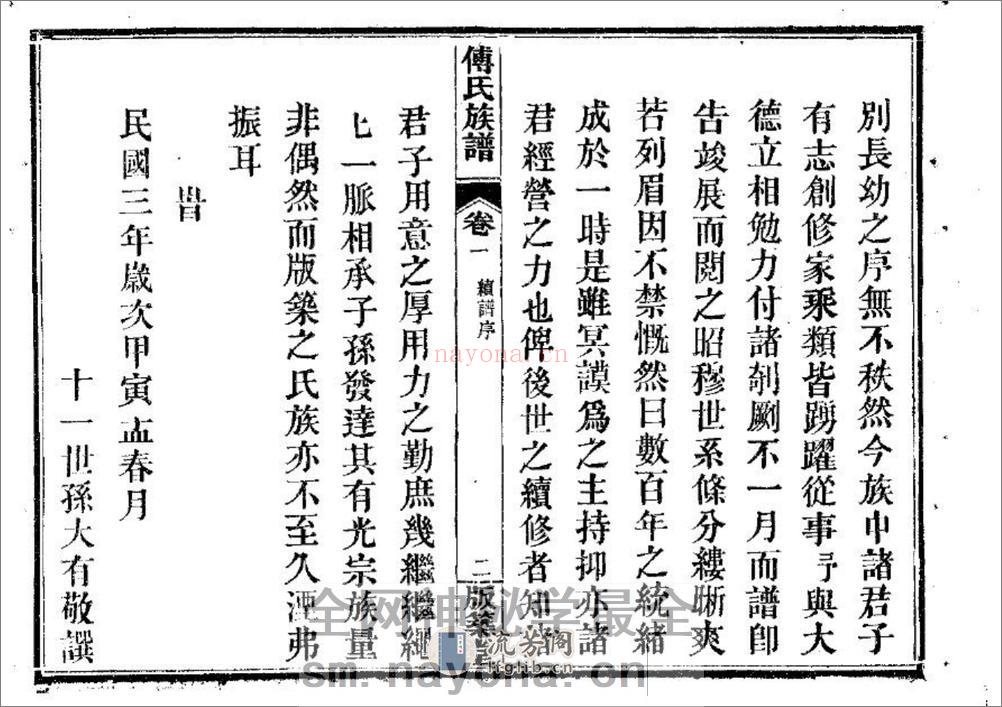 別長幼之序無不秩然今族中諸君子
有志創修家乘類皆踴躍從事予與大
德立相勉力付諸剞劂不一月而譜卽
告竣展而閱之昭穆世系條分縷晰爽
若列眉因不禁慨然曰數百年之統緒
成於一時是雖冥謨爲之主持抑亦諸
君經營之力也俾後世之續修者知諸
傅氏族譜 卷一 續譜序 二 版築堂
君子用意之厚用力之勤庶幾繼繼繩
匕一脈相承子孫發達其有光宗族量
非偶然而版築之氏族亦不至久湮弗
振耳
旹
民國三年歲次甲寅孟春月
十一世孫大有敬譔
nayona.cn
全网神秘学最全
流芳阁
lfglib.cn
sm.nayona.cn